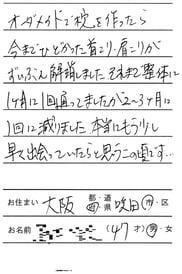 オーダメイドで枕を作ったら
今までひどかった首こり・肩こりが
ずいぶん解消しました それまで整体に
1ヶ月に1回通ってましたが2〜3ヶ月に
1回に減りました 本当にもう少し
早く出会っていたらと思うこの頃です…
お住まい 大阪 都・道 府・県 吹田 市・区
お名前 (47才) 男・女